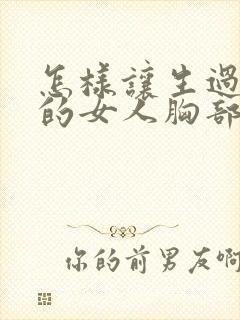 怎樣讓生過
的女人胸部
你的前男友啊